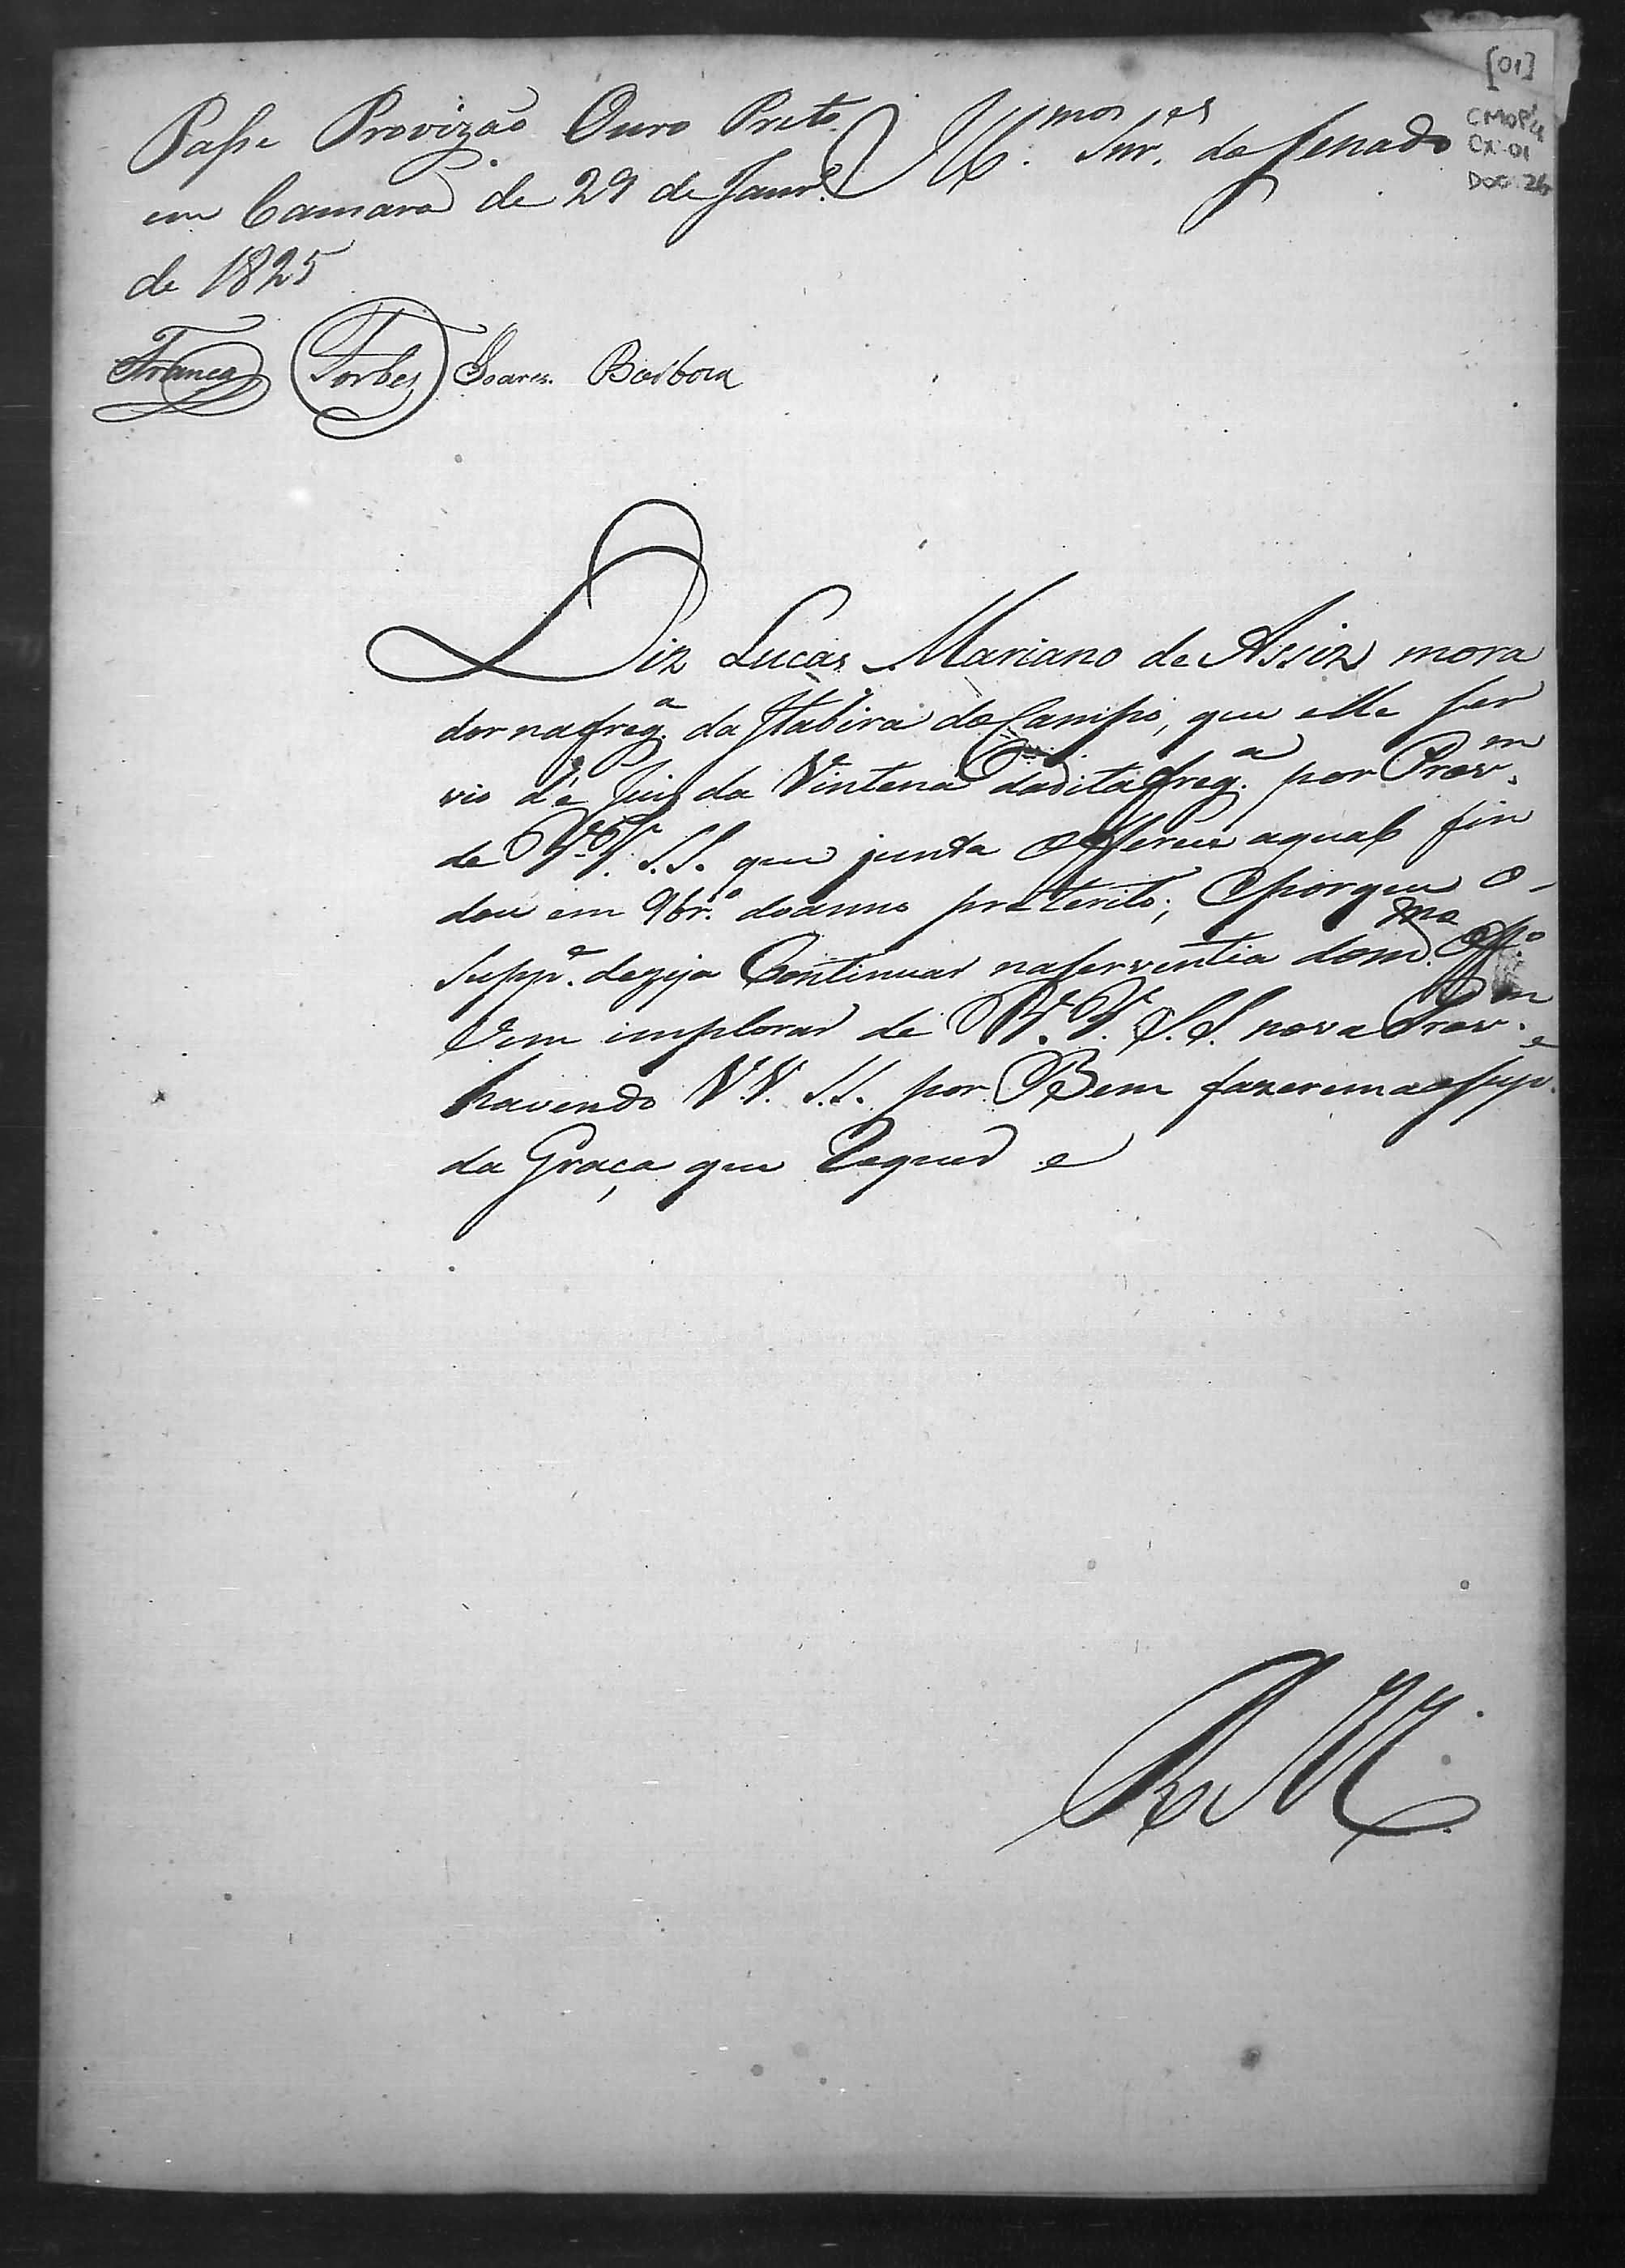 [01]
CMOP
CX. 01
DOC. 26
Passe Provizaõ Ouro Preto
em Camara de 29 de Janr.º
de 1825
Franca Torbes Soares Barboza
Ill.mos Snr.es do Senado
Diz Lucas Mariano de Assiz mora
dor na freg.a da Itabira do Campo, que elle ser
vio de Juiz da Vintena da dita freg.a por Prov.m
de V.V. S.S. que junta offerece a qual fin
dou em 9br.º do anno preterito; e porque o
Supp.e dezeja Continuar na serventia do m.mo Off.º
Vem implorar de V.V. S.S. nova Prov.m
havendo V.V. S.S. por Bem fazerem ao Sup.e
da Graça que Requer e
R. M.